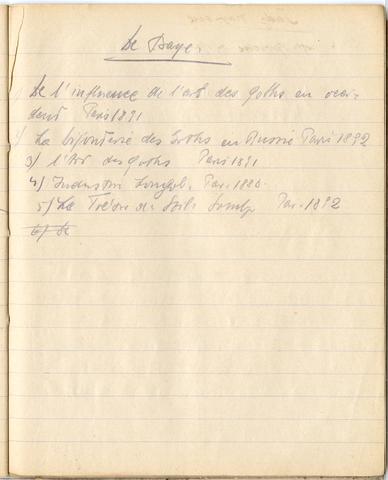 De Baye
1) De l'influence de l'art des goths en occi-
dent Paris 1891
2) La bijouterie des Goths en Russie Paris 1892
3) l'Art des goths Paris 1891
4) Industri Par. 1888.
5) Le Trésor de Par. 1892
6)